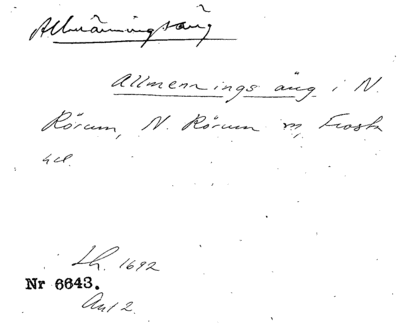 Allmänningsäng
Allmennings äng i N.
Rörum, N. Rörum sn, Frosta
hd.
Lh. 1692
Nr 6643.
Avl 2.